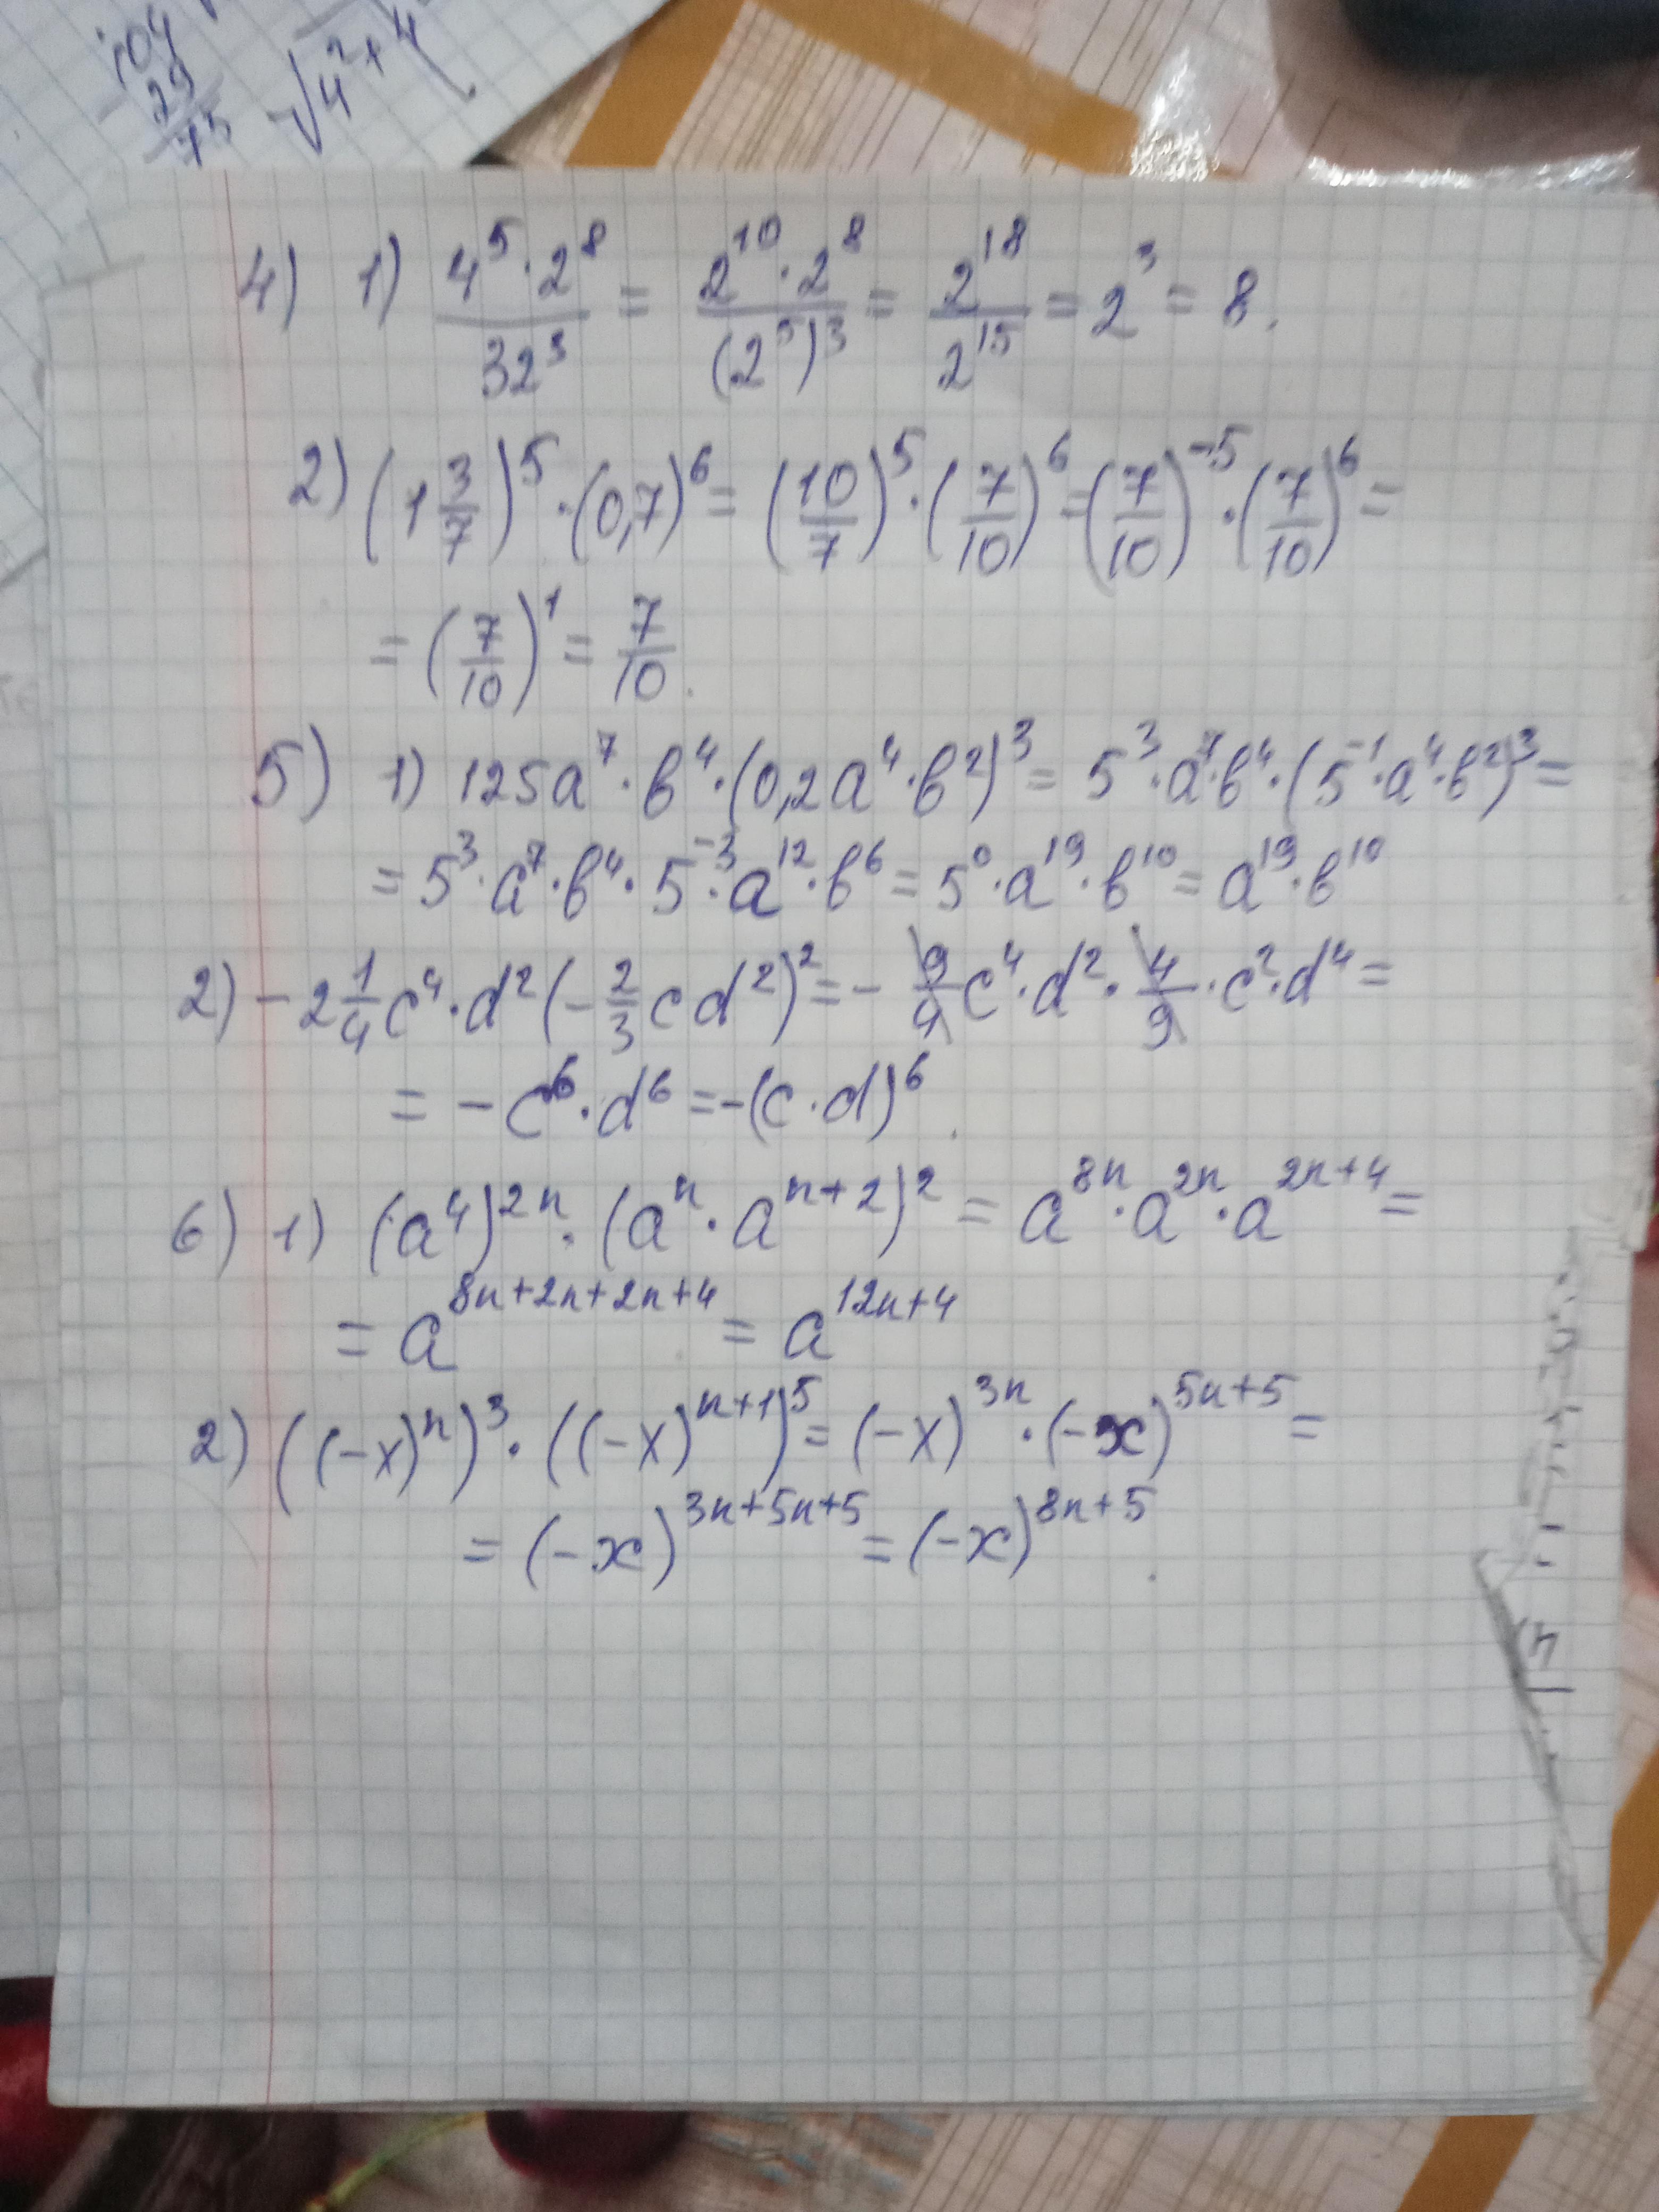 104
29
75
√4²+4
4) 1) \frac{4^5 · 2^8}{32^3} = \frac{2^{10} · 2^8}{(2^5)^3} = \frac{2^{18}}{2^{15}} = 2^3 = 8.
2) (1\frac{3}{7})^5 · (0,7)^6 = (\frac{10}{7})^5 · (\frac{7}{10})^6 = (\frac{7}{10})^{-5} · (\frac{7}{10})^6 =
= (\frac{7}{10})^1 = \frac{7}{10}.
5) 1) 125a^7 · b^4 · (0,2a^4 · b^2)^3 = 5^3 · a^7 · b^4 · (5^{-1} · a^4 · b^2)^3 =
= 5^3 · a^7 · b^4 · 5^{-3} · a^{12} · b^6 = 5^0 · a^{19} · b^{10} = a^{19} · b^{10}
2) -2\frac{1}{4}c^4 · d^2(-\frac{2}{3}cd^2)^2 = -\frac{9}{4}c^4 · d^2 · \frac{4}{9} · c^2 · d^4 =
= -c^6 · d^6 = -(c · d)^6.
6) 1) (a^4)^{2n} · (a^n · a^{n+2})^2 = a^{8n} · a^{2n} · a^{2n+4} =
= a^{8n+2n+2n+4} = a^{12n+4}
2) ((-x)^n)^3 · ((-x)^{n+1})^5 = (-x)^{3n} · (-x)^{5n+5} =
= (-x)^{3n+5n+5} = (-x)^{8n+5}.